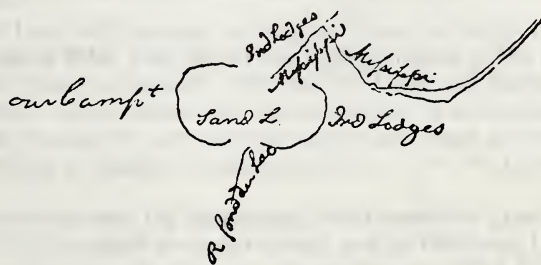 Ind Lodges
Missippi
Missippi
our Campt
Sand L.
Ind Lodges
R fond du Lac